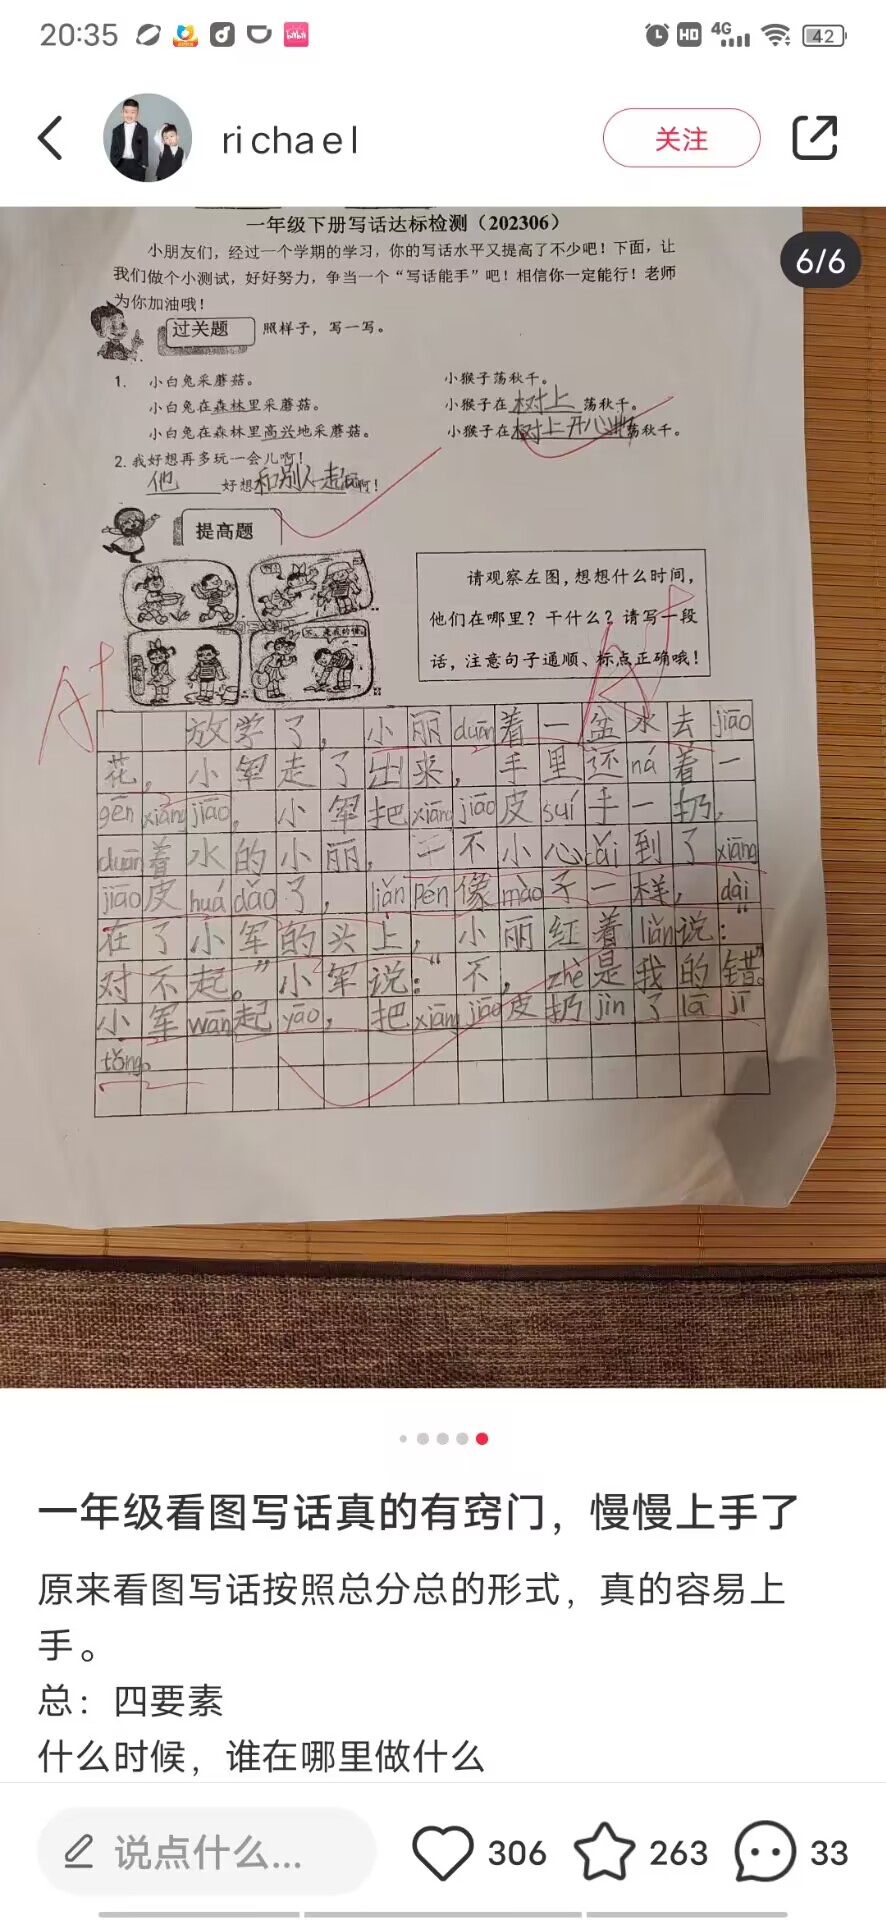 20:35
HD 4G 42
richael
关注
6/6
一年级下册写话达标检测（202306）
小朋友们，经过一个学期的学习，你的写话水平又提高了不少吧！下面，让
我们做个小测试，好好努力，争当一个“写话能手”吧！相信你一定能行！老师
为你加油哦！
过关题 照样子，写一写。
1. 小白兔采蘑菇。
小白兔在森林里采蘑菇。
小白兔在森林里高兴地采蘑菇。
小猴子荡秋千。
小猴子在树上荡秋千。
小猴子在树上开心地荡秋千。
2.我好想再多玩一会儿啊！
他好想和别人一起玩啊！
提高题
请观察左图，想想什么时间，
他们在哪里？干什么？请写一段
话，注意句子通顺、标点正确哦！
A+
A+
放学了，小丽duān着一盆水去jiāo
花，小军走了出来，手里还ná着一
gēn xiāng jiāo，小军把xiāng jiāo皮suí手一扔，
duān着水的小丽，一不小心cǎi到了xiāng
jiāo皮huá dǎo了，liǎn pén像mào子一样，dài
在了小军的头上，小丽红着liǎn说：“
对不起。”小军说：“不，zhè是我的错。”
小军wān起yāo，把xiāng jiāo皮扔jìn了lā jī
tǒng。
一年级看图写话真的有窍门，慢慢上手了
原来看图写话按照总分总的形式，真的容易上
手。
总：四要素
什么时候，谁在哪里做什么
说点什么...
306
263
33